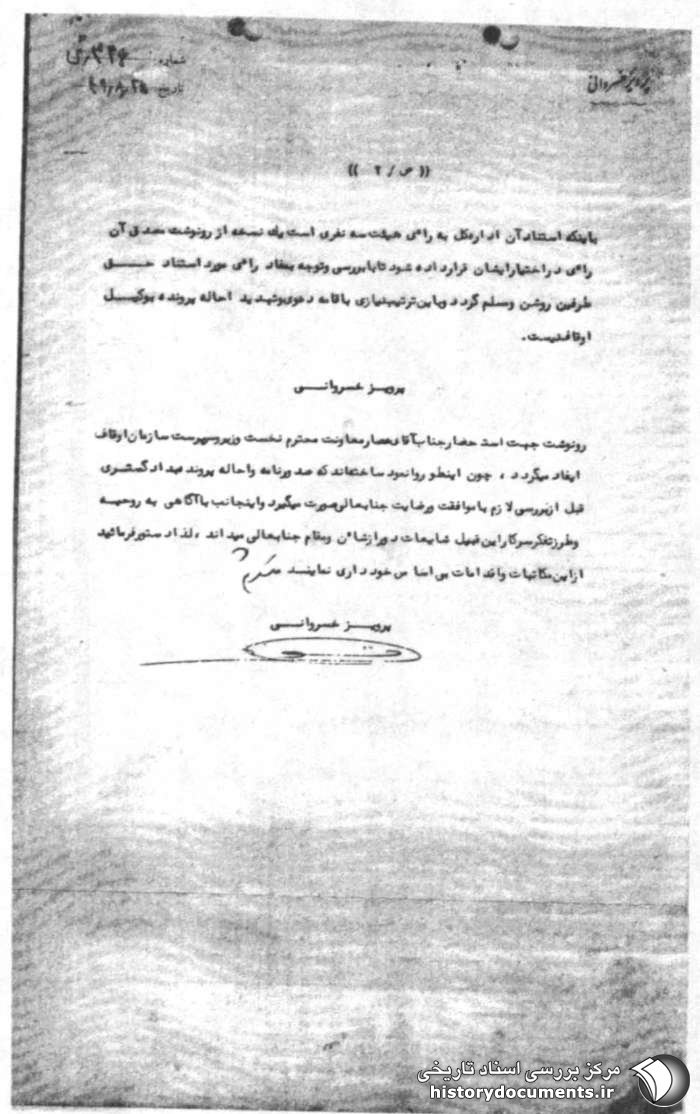 پرویز خسروانی
شماره ۳۴۶
تاریخ ۴۹٫۸٫۲۵
(( ص / ۲ ))
باینکه استناد آن اداره کل به رای هیئت سه نفری است یك نسخه از رونوشت مصدق آن
رای در اختیار ایشان قرار داده شود تا با بررسی و توجه بمفاد رای مورد استناد حق
طرفین روشن و مسلم گردد و باین ترتیب نیازی با قامه دعوی و تهدید احاله پرونده بوکیل
اوقاف نیست.
پرویز خسروانی
رونوشت جهت استحضار جناب آقای عصار معاونت محترم نخست وزیر و سرپرست سازمان اوقاف
ایفاد میگردد ، چون اینطور وانمود ساخته‌اند که صدور نامه و احاله پرونده به دادگستری
قبل از بررسی لازم با موافقت و رضایت جنابعالی صورت میگیرد و اینجانب با آگاهی به روحیه
و طرز تفکر سرکار این قبیل شایعات دور از شان و مقام جنابعالی میداند ، لذا دستور فرمائید
از این مکاتبات و اقدامات بی اساس خودداری نمایند
پرویز خسروانی
مرکز بررسی اسناد تاریخی
historydocuments.ir